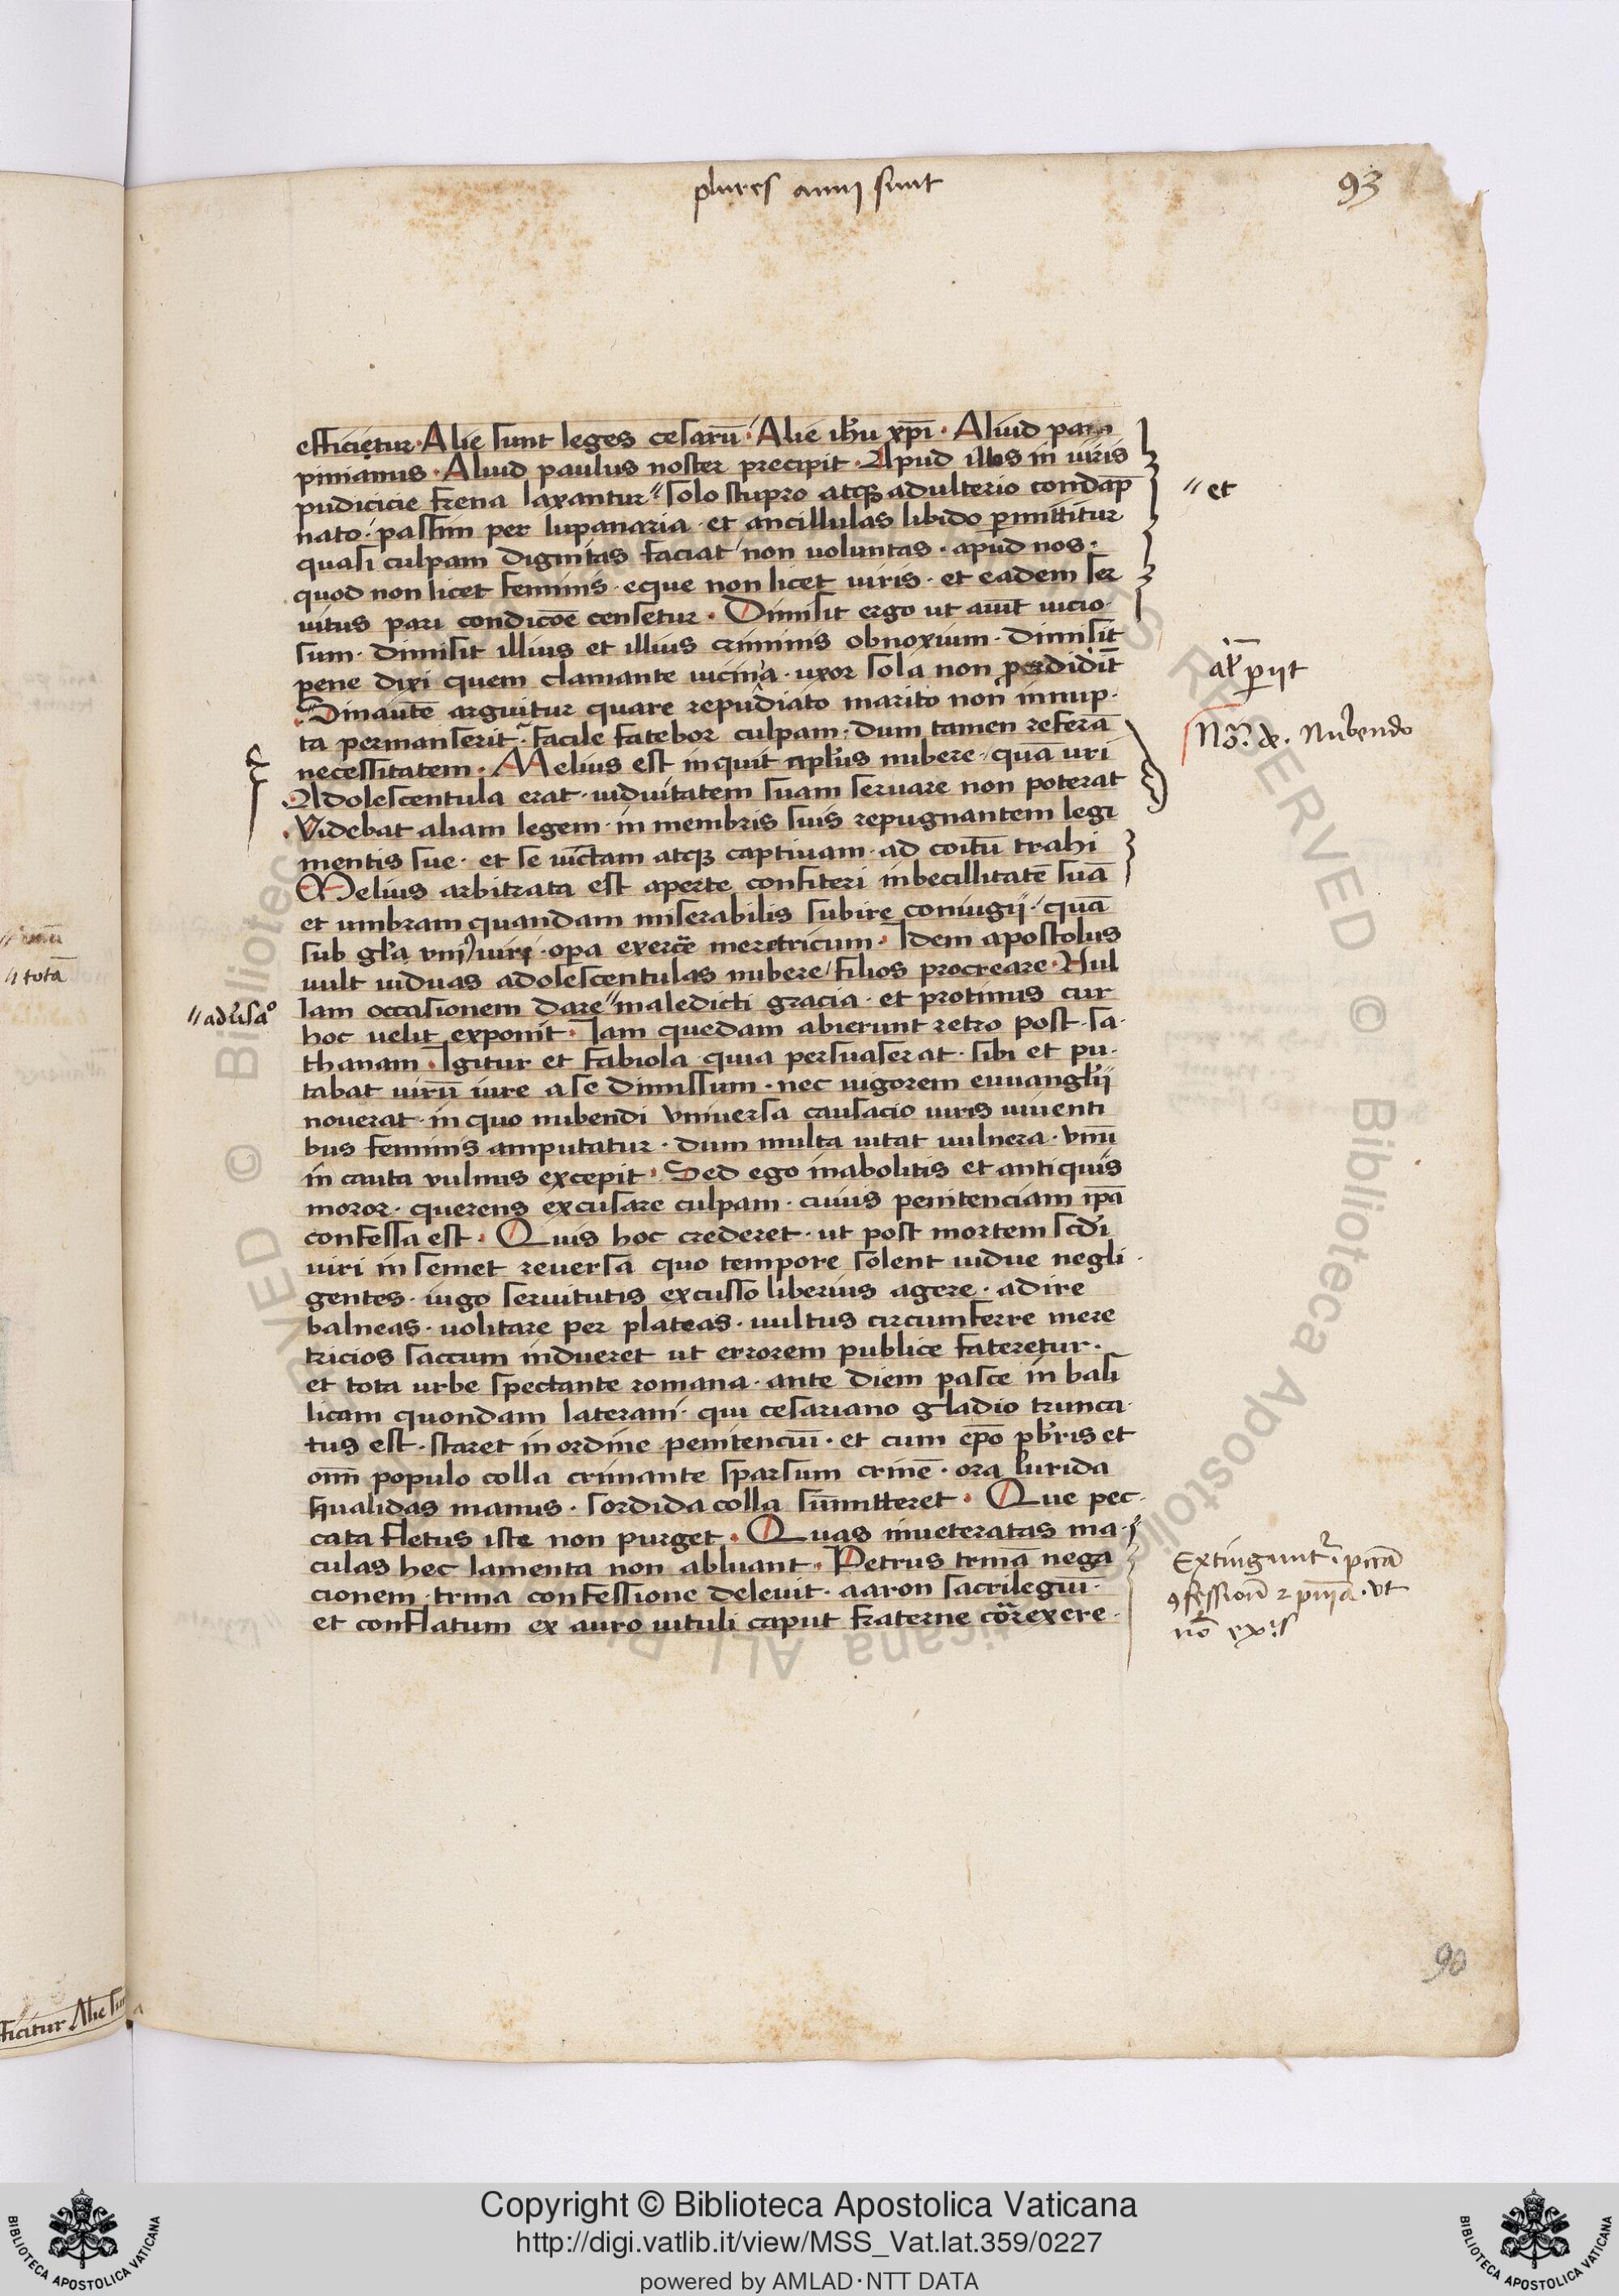 plures anni sunt
93
efficietur · Alie sunt leges cesarū · Alie ihu xpi · Aliud pam
pinianus · Aliud paulus noster precipit · Apud illos in viris
pudicicie frena laxantur // solo stupro atq3 adulterio condāp
// et
nato · passim per lupanaria · et ancillulas libido pmittitur
quasi culpam dignitas faciat non voluntas · apud nos ·
quod non licet feminis · eque non licet viris · et eadem ser
vitus pari condicōe censetur · Dimisit ergo ut aiūt vicio
sum · dimisit illius et illius criminis obnoxium · dimisit
pene dixi quem clamante vicinia · uxor sola non prodidit
al' periit
Sin autē arguitur quare repudiato marito non innup
ta permanserit · facile fatebor culpam · dum tamen referā
Nō. de. Nubendo
necessitatem · Melius est inquit aplus nubere · quā uri
Adolescentula erat · viduitatem suam servare non poterat
Videbat aliam legem · in membris suis repugnantem legi
mentis sue · et se vinctam atq3 captivam · ad coitū trahi
Melius arbitrata est aperte confiteri inbecillitatē suā
et umbram quandam miserabilis subire coniugij · quā
sub gl'a unius viri · opa exercē meretricum · Idem apostolus
vult viduas adolescentulas nubere / filios procreare · Nul
lam occasionem dare // maledicti gracia · et protinus cur
// adūsāo
hoc velit exponit · Iam quedam abierunt retro post sa
thanam · Igitur et fabiola quia persuaserat · sibi et pu
tabat virū iure a se dimissum · nec vigorem euuanglij
noverat · in quo nubendi universa causacio viris viventi
bus feminis amputatur · dum multa vitat vulnera · unū
in cauta vulnus excepit · Sed ego in abolitis et antiquis
moror · querens excusare culpam · cuius penitenciam ipā
confessa est · Quis hoc crederet · ut post mortem scdi
viri in semet reversa quo tempore solent vidue negli
gentes · iugo servitutis excusso liberius agere · adire
balneas · volitare per plateas · vultus circumferre mere
tricios saccum indueret ut errorem publice fateretur ·
et tota urbe spectante romana · ante diem pasce in basi
licam quondam laterani · qui cesariano gladio trunca
tus est · staret in ordine penitenciū · et cum epo pbris et
omi populo colla crimante sparsum crinē · ora lurida
squalidas manus · sordida colla sūmitteret · Que pec
cata fletus iste non purget · Quas inveteratas ma
culas hec lamenta non abluant · Petrus trinā nega
cionem · trina confessione delevit · aaron sacrilegiū ·
et conflatum ex auro vituli caput fraterne cōrexere
Extinguunt
9fessionē
nō
90
ficitur Alie sūt
// totā
Copyright © Biblioteca Apostolica Vaticana
http://digi.vatlib.it/view/MSS_Vat.lat.359/0227
powered by AMLAD·NTT DATA
BIBLIOTECA APOSTOLICA VATICANA
BIBLIOTECA APOSTOLICA VATICANA